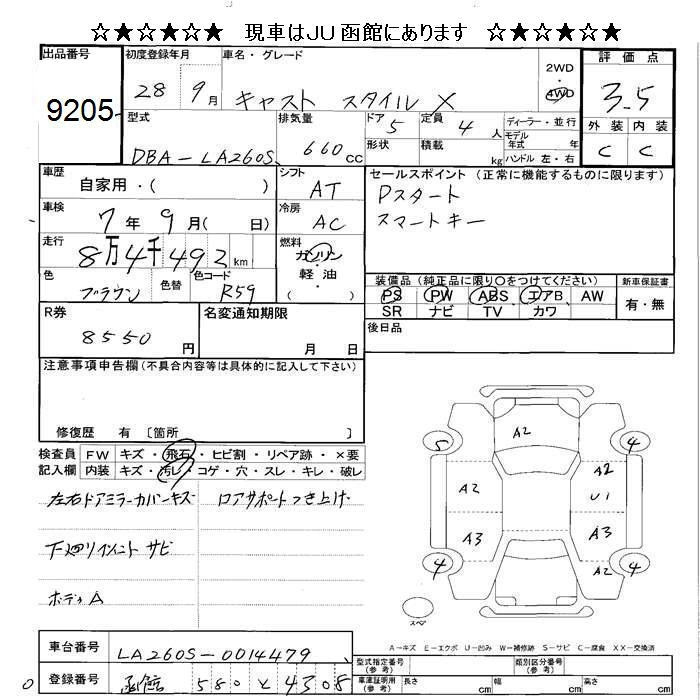 ☆★☆★☆★ 現車はJU函館にあります ☆★☆★☆★
出品番号 初度登録年月 車名・グレード 評価点
9205 28 9月 キャスト スタイル X 2WD・4WD 3.5
型式 排気量 ドア 5 定員 4人 ディーラー・並行 外装 内装
DBA-LA260S 660cc 形状 積載 kg モデル年式 年 ハンドル 左・右 C C
車歴 自家用・( ) シフト AT セールスポイント (正常に機能するものに限ります)
車検 7年 9月( 日) 冷房 AC Pスタート
スマートキー
走行 8万4千492km 燃料 ガソリン・軽油( )
色 ブラウン 色替 色コード R59 装備品 (純正品に限り○をつけてください) 新車保証書
PS PW ABS エアB AW 有・無
SR ナビ TV カワ
R券 8550円 名変通知期限 月 日 後日品
注意事項申告欄 (不具合内容等は具体的に記入して下さい)
修復歴 有 〔箇所 〕
検査員記入欄 FW キズ・飛石・ヒビ割・リペア跡・×要
内装 キズ・汚レ・コゲ・穴・スレ・キレ・破レ
左右ドアミラーカバーキズ ロアサポートつき上げ
下廻リ サビ
ボディA
A2
5 4
A2 A2
U1
A3 A3
4 A2 4
スペア
A-キズ E-エクボ U-凹み W-補修跡 S-サビ C-腐食 XX-交換済
車台番号 LA260S-0014479 型式指定番号(参考) 類別区分番号(参考)
登録番号 函館 580 と 4308 車庫証明用(参考) 長さ cm 幅 cm 高さ cm
0